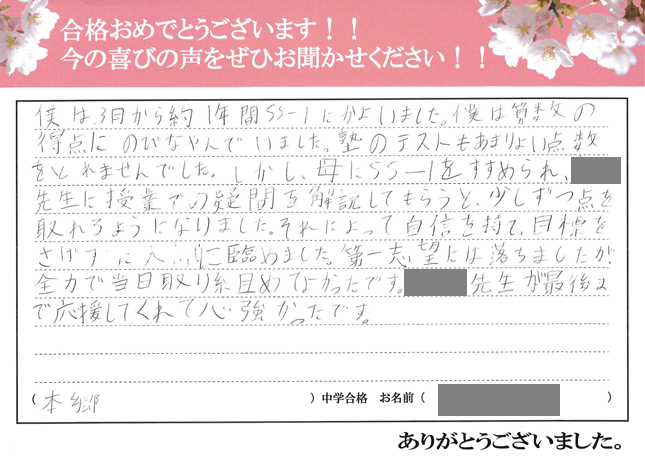 合格おめでとうございます！！
今の喜びの声をぜひお聞かせください！！
僕は3月から約1年間SS-1にかよいました。僕は算数の
得点にのびなやんでいました。塾のテストもあまりよい点数
をとれませんでした。しかし、母にSS-1をすすめられ、
先生に授業での疑問を解説してもらうと、少しずつ点を
取れるようになりました。それによって自信を持て、目標を
さげずに入試に臨めました。第一志望には落ちましたが
全力で当日取り組めてよかったです。先生が最後ま
で応援してくれて心強かったです。
（本郷）中学合格 お名前（ ）
ありがとうございました。